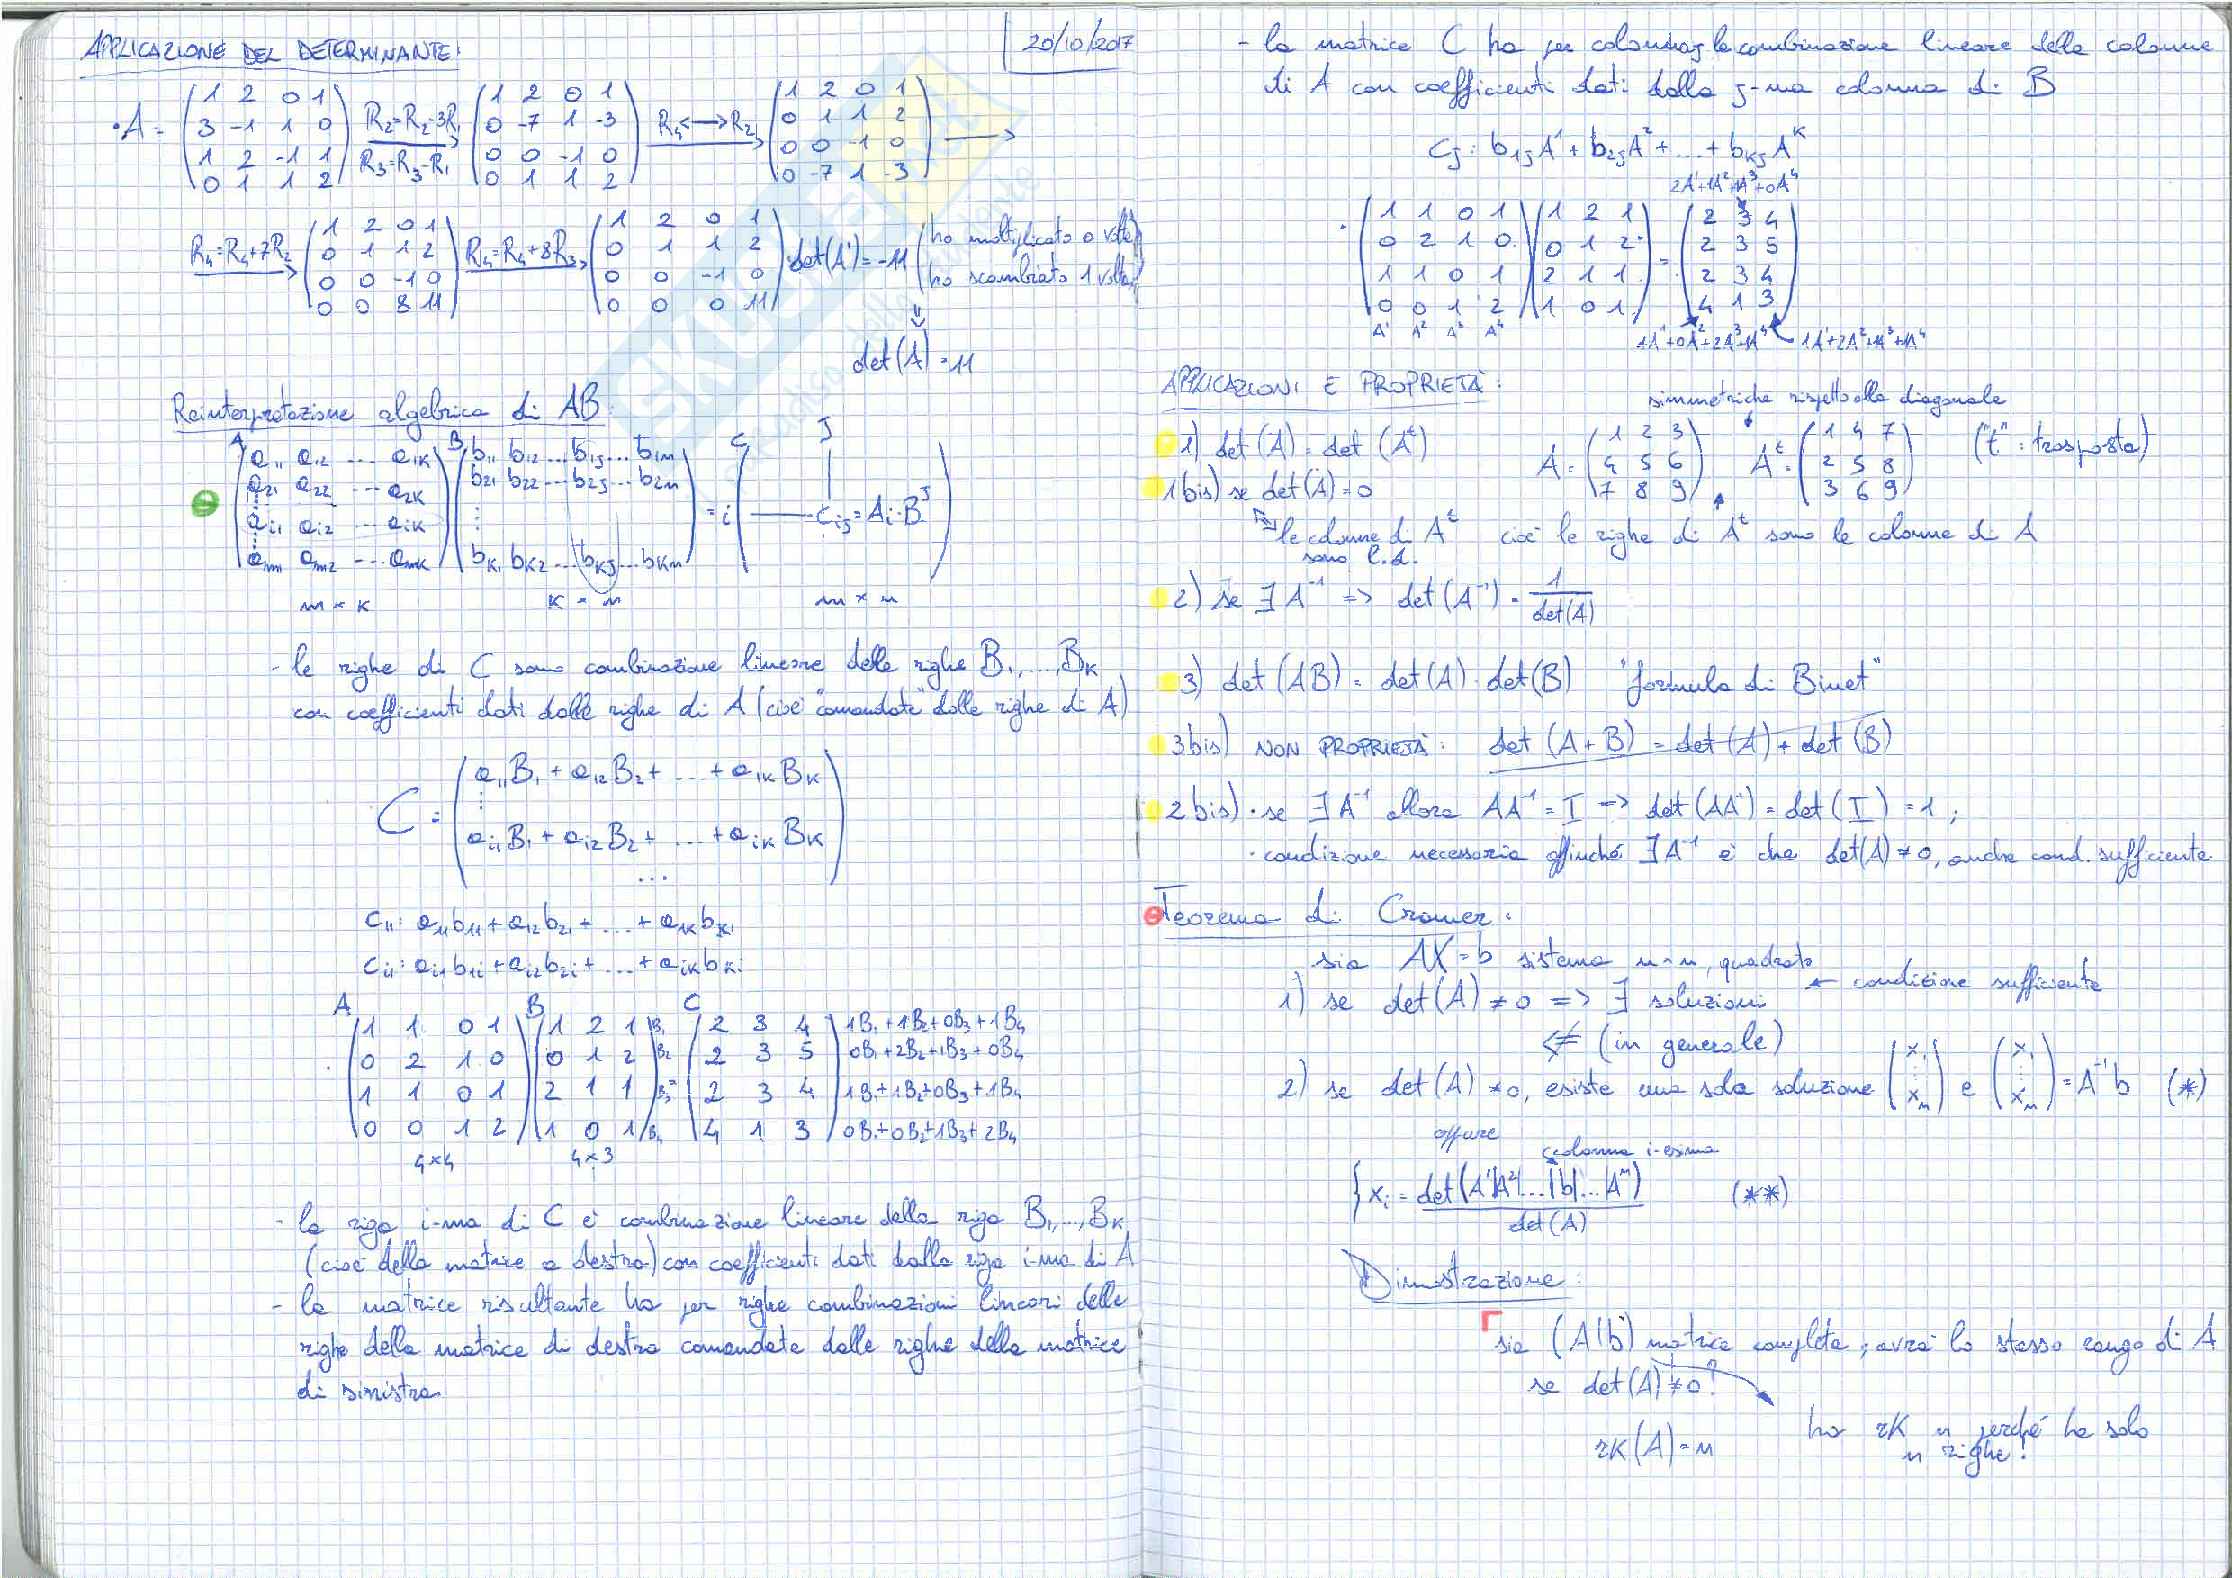 APPLICAZIONE DEL DETERMINANTE:
20/10/2017
• A = (1 2 0 1 / 3 -1 1 0 / 1 2 -1 1 / 0 1 1 2) R₂=R₂-3R₁ R₃=R₃-R₁ → (1 2 0 1 / 0 -7 1 -3 / 0 0 -1 0 / 0 1 1 2) R₄↔R₂ → (1 2 0 1 / 0 1 1 2 / 0 0 -1 0 / 0 -7 1 -3) →
R₄=R₄+7R₂ → (1 2 0 1 / 0 1 1 2 / 0 0 -1 0 / 0 0 8 11) R₄=R₄+8R₃ → (1 2 0 1 / 0 1 1 2 / 0 0 -1 0 / 0 0 0 11) det(A')=-11 (ho moltiplicato 0 volte, ho scambiato 1 volta)
⇓
det(A)=11
Reinterpretazione algebrica di AB:
A B C J
(a₁₁ a₁₂ ... a₁K / a₂₁ a₂₂ ... a₂K / aᵢ₁ aᵢ₂ ... aᵢK / aₘ₁ aₘ₂ ... aₘK) (b₁₁ b₁₂ ... b₁ⱼ ... b₁ₙ / b₂₁ b₂₂ ... b₂ⱼ ... b₂ₙ / ⋮ / bK₁ bK₂ ... bKⱼ ... bKₙ) = i ( cᵢⱼ = Aᵢ·Bᴶ )
m × K K × n m × n
- le righe di C sono combinazione lineare delle righe B₁, ..., BK
con coefficienti dati dalle righe di A (cioè "comandate" dalle righe di A)
C = (a₁₁B₁ + a₁₂B₂ + ... + a₁KBK / ⋮ / aᵢ₁B₁ + aᵢ₂B₂ + ... + aᵢKBK / ...)
c₁₁: a₁₁b₁₁ + a₁₂b₂₁ + ... + a₁KbK₁
cᵢᵢ: aᵢ₁b₁ᵢ + aᵢ₂b₂ᵢ + ... + aᵢKbKᵢ
A B C
(1 1 0 1 / 0 2 1 0 / 1 1 0 1 / 0 0 1 2) (1 2 1 / 0 1 2 / 2 1 1 / 1 0 1) B₁ B₂ B₃ B₄ = (2 3 4 / 2 3 5 / 2 3 4 / 4 1 3)
1B₁+1B₂+0B₃+1B₄
0B₁+2B₂+1B₃+0B₄
1B₁+1B₂+0B₃+1B₄
0B₁+0B₂+1B₃+2B₄
4×4 4×3
- la riga i-ma di C è combinazione lineare della riga B₁, ..., BK
(cioè della matrice a destra) con coefficienti dati dalla riga i-ma di A
- la matrice risultante ha per righe combinazioni lineari delle
righe della matrice di destra comandate dalle righe della matrice
di sinistra
- la matrice C ha per colonna j la combinazione lineare delle colonne
di A con coefficienti dati dalla j-ma colonna di B
Cⱼ: b₁ⱼA¹ + b₂ⱼA² + ... + bKⱼAᴷ
2A¹+1A²+1A³+0A⁴
• (1 1 0 1 / 0 2 1 0 / 1 1 0 1 / 0 0 1 2) (1 2 1 / 0 1 2 / 2 1 1 / 1 0 1) = (2 3 4 / 2 3 5 / 2 3 4 / 4 1 3)
A¹ A² A³ A⁴
1A¹+0A²+2A³+1A⁴ 1A¹+2A²+1A³+1A⁴
APPLICAZIONI E PROPRIETÀ:
simmetriche rispetto alla diagonale
1) det(A) = det(Aᵗ) A = (1 2 3 / 4 5 6 / 7 8 9) Aᵗ = (1 4 7 / 2 5 8 / 3 6 9) ("t" = trasposta)
1bis) se det(A)=0
le colonne di Aᵗ cioè le righe di Aᵗ sono le colonne di A
sono l.d.
2) se ∃ A⁻¹ => det(A⁻¹) = 1/det(A)
3) det(AB) = det(A)·det(B) "formula di Binet"
3bis) NON PROPRIETÀ: det(A+B) = det(A) + det(B)
2bis) • se ∃ A⁻¹ allora AA⁻¹ = I -> det(AA⁻¹) = det(I) = 1;
• condizione necessaria affinché ∃ A⁻¹ è che det(A)≠0, anche cond. sufficiente
Teorema di Cramer:
sia AX=b sistema n×n, quadrato
1) se det(A) ≠ 0 => ∃ soluzioni ← condizione sufficiente
⇍ (in generale)
2) se det(A) ≠ 0, esiste una sola soluzione (x₁ ⋮ xₙ) e (x₁ ⋮ xₙ) = A⁻¹b (*)
oppure
colonna i-esima
{ xᵢ = det(A¹|A²|...|b|...Aⁿ) / det(A) (**)
Dimostrazione:
sia (A|b) matrice completa; avrà lo stesso rango di A
se det(A)≠0?
rK(A)=n
ho rK n perché ho solo
n righe!